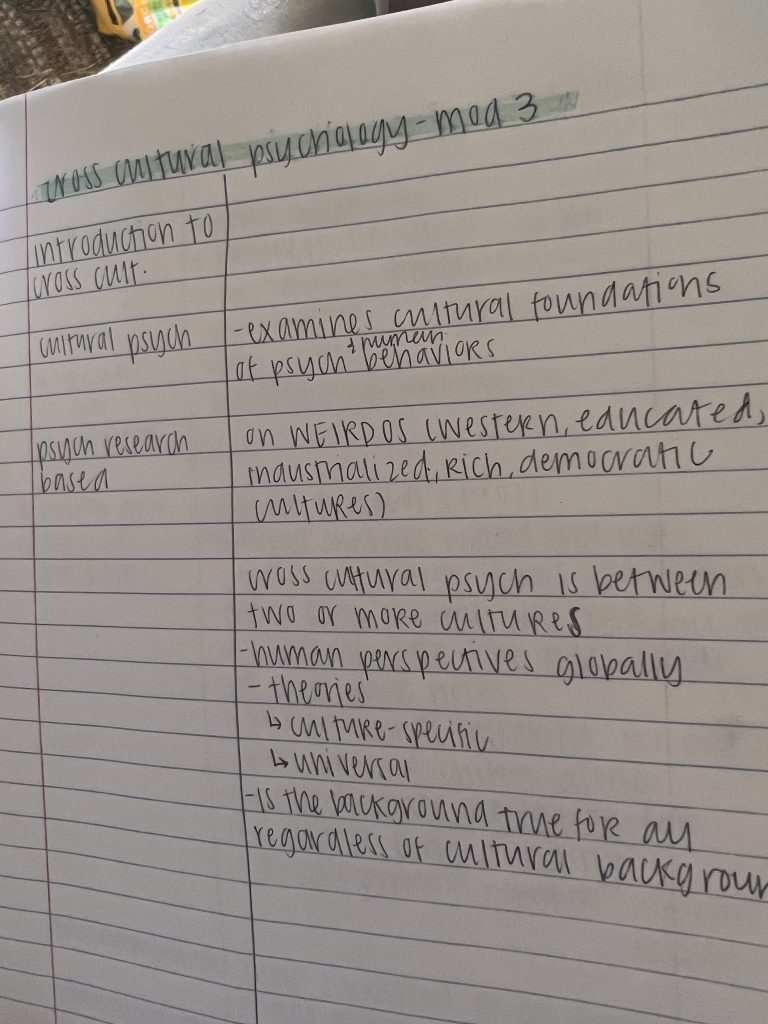 cross cultural psychology - mod 3
introduction to
cross cult.
cultural psych
- examines cultural foundations
of psych & human behaviors
psych research
based
on WEIRDOS (western, educated,
industrialized, rich, democratic
cultures)
cross cultural psych is between
two or more cultures
- human perspectives globally
- theories
↳ culture-specific
↳ universal
- is the background true for all
regardless of cultural backgroun